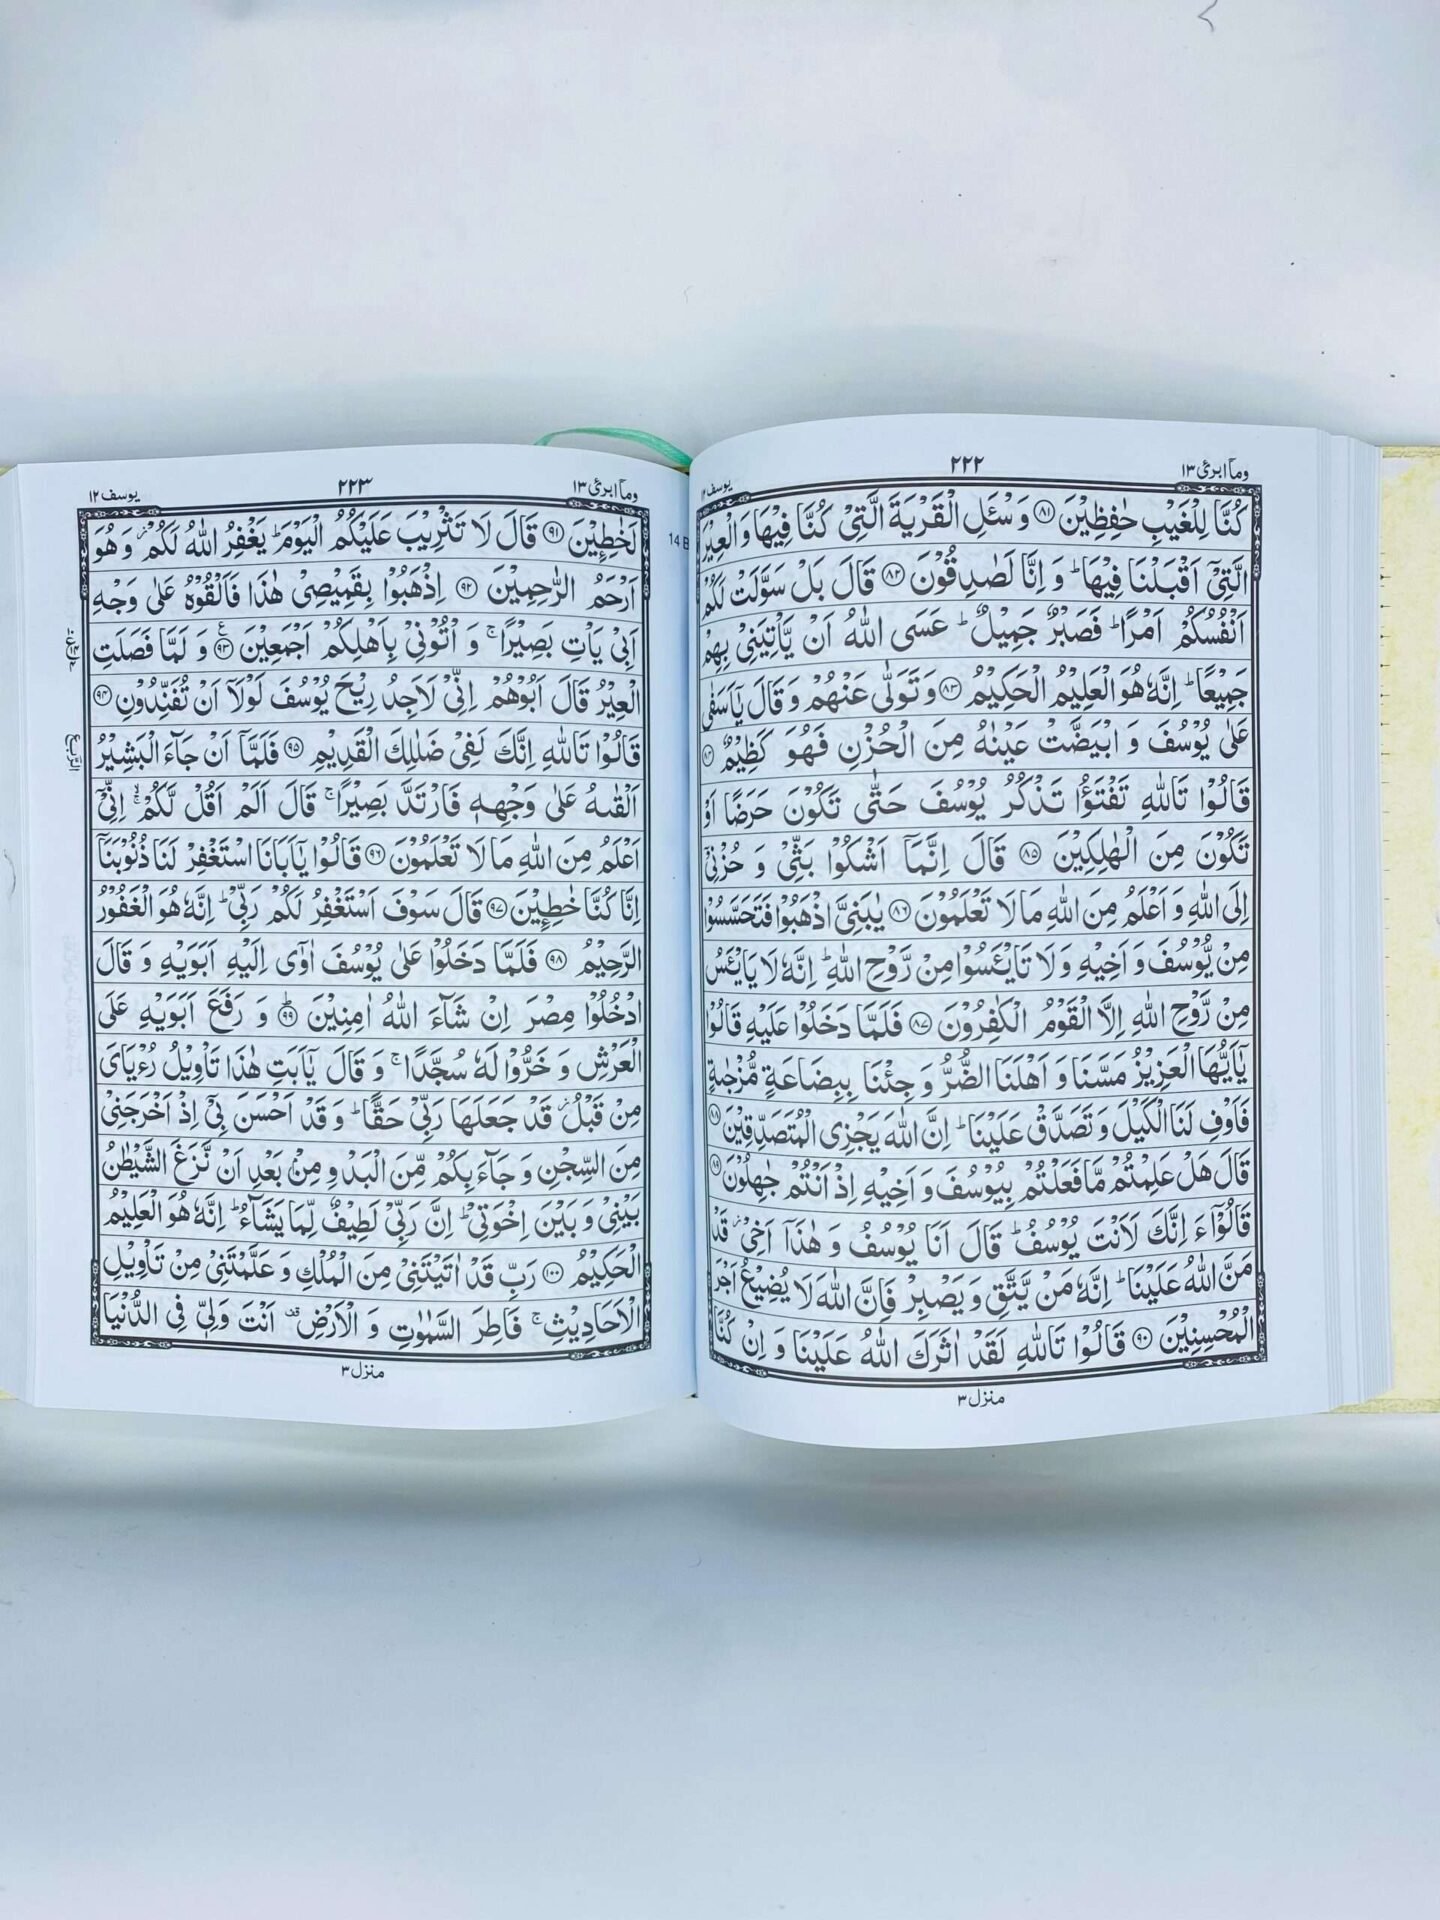 وماۤابرئ ١٣
٢٢٢
يوسف ١٢
كُنَّا لِلْغَيْبِ حٰفِظِيْنَ ﴿٨١﴾ وَسْـَٔلِ الْقَرْيَةَ الَّتِيْ كُنَّا فِيْهَا وَالْعِيْرَ
الَّتِيْٓ اَقْبَلْنَا فِيْهَا ؕ وَ اِنَّا لَصٰدِقُوْنَ ﴿٨٢﴾ قَالَ بَلْ سَوَّلَتْ لَكُمْ
اَنْفُسُكُمْ اَمْرًا ؕ فَصَبْرٌ جَمِيْلٌ ؕ عَسَى اللّٰهُ اَنْ يَّاْتِيَنِيْ بِهِمْ
جَمِيْعًا ؕ اِنَّهٗ هُوَ الْعَلِيْمُ الْحَكِيْمُ ﴿٨٣﴾ وَتَوَلّٰى عَنْهُمْ وَقَالَ يٰۤاَسَفٰى
عَلٰى يُوْسُفَ وَ ابْيَضَّتْ عَيْنٰهُ مِنَ الْحُزْنِ فَهُوَ كَظِيْمٌ ﴿٨٤﴾
قَالُوْا تَاللّٰهِ تَفْتَؤُا تَذْكُرُ يُوْسُفَ حَتّٰى تَكُوْنَ حَرَضًا اَوْ
تَكُوْنَ مِنَ الْهٰلِكِيْنَ ﴿٨٥﴾ قَالَ اِنَّمَاۤ اَشْكُوْا بَثِّيْ وَ حُزْنِيْٓ
اِلَى اللّٰهِ وَ اَعْلَمُ مِنَ اللّٰهِ مَا لَا تَعْلَمُوْنَ ﴿٨٦﴾ يٰبَنِيَّ اذْهَبُوْا فَتَحَسَّسُوْا
مِنْ يُّوْسُفَ وَ اَخِيْهِ وَلَا تَايْـَٔسُوْا مِنْ رَّوْحِ اللّٰهِ ؕ اِنَّهٗ لَا يَايْـَٔسُ
مِنْ رَّوْحِ اللّٰهِ اِلَّا الْقَوْمُ الْكٰفِرُوْنَ ﴿٨٧﴾ فَلَمَّا دَخَلُوْا عَلَيْهِ قَالُوْا
يٰۤاَيُّهَا الْعَزِيْزُ مَسَّنَا وَ اَهْلَنَا الضُّرُّ وَجِئْنَا بِبِضَاعَةٍ مُّزْجٰىةٍ
فَاَوْفِ لَنَا الْكَيْلَ وَتَصَدَّقْ عَلَيْنَا ؕ اِنَّ اللّٰهَ يَجْزِي الْمُتَصَدِّقِيْنَ ﴿٨٨﴾
قَالَ هَلْ عَلِمْتُمْ مَّا فَعَلْتُمْ بِيُوْسُفَ وَ اَخِيْهِ اِذْ اَنْتُمْ جٰهِلُوْنَ ﴿٨٩﴾
قَالُوْۤا ءَاِنَّكَ لَاَنْتَ يُوْسُفُ ؕ قَالَ اَنَا يُوْسُفُ وَ هٰذَاۤ اَخِيْ ز قَدْ
مَنَّ اللّٰهُ عَلَيْنَا ؕ اِنَّهٗ مَنْ يَّتَّقِ وَيَصْبِرْ فَاِنَّ اللّٰهَ لَا يُضِيْعُ اَجْرَ
الْمُحْسِنِيْنَ ﴿٩٠﴾ قَالُوْا تَاللّٰهِ لَقَدْ اٰثَرَكَ اللّٰهُ عَلَيْنَا وَ اِنْ كُنَّا
منزل ٣
وماۤابرئ ١٣
٢٢٣
يوسف ١٢
لَخٰطِـِٕيْنَ ﴿٩١﴾ قَالَ لَا تَثْرِيْبَ عَلَيْكُمُ الْيَوْمَ ؕ يَغْفِرُ اللّٰهُ لَكُمْ ز وَهُوَ
اَرْحَمُ الرّٰحِمِيْنَ ﴿٩٢﴾ اِذْهَبُوْا بِقَمِيْصِيْ هٰذَا فَاَلْقُوْهُ عَلٰى وَجْهِ
اَبِيْ يَاْتِ بَصِيْرًا ۚ وَ اْتُوْنِيْ بِاَهْلِكُمْ اَجْمَعِيْنَ ﴿٩٣﴾ وَ لَمَّا فَصَلَتِ
الْعِيْرُ قَالَ اَبُوْهُمْ اِنِّيْ لَاَجِدُ رِيْحَ يُوْسُفَ لَوْلَاۤ اَنْ تُفَنِّدُوْنِ ﴿٩٤﴾
قَالُوْا تَاللّٰهِ اِنَّكَ لَفِيْ ضَلٰلِكَ الْقَدِيْمِ ﴿٩٥﴾ فَلَمَّاۤ اَنْ جَآءَ الْبَشِيْرُ
اَلْقٰىهُ عَلٰى وَجْهِهٖ فَارْتَدَّ بَصِيْرًا ۚ قَالَ اَلَمْ اَقُلْ لَّكُمْ ۙ اِنِّيْٓ
اَعْلَمُ مِنَ اللّٰهِ مَا لَا تَعْلَمُوْنَ ﴿٩٦﴾ قَالُوْا يٰۤاَبَانَا اسْتَغْفِرْ لَنَا ذُنُوْبَنَاۤ
اِنَّا كُنَّا خٰطِـِٕيْنَ ﴿٩٧﴾ قَالَ سَوْفَ اَسْتَغْفِرُ لَكُمْ رَبِّيْ ؕ اِنَّهٗ هُوَ الْغَفُوْرُ
الرَّحِيْمُ ﴿٩٨﴾ فَلَمَّا دَخَلُوْا عَلٰى يُوْسُفَ اٰوٰٓى اِلَيْهِ اَبَوَيْهِ وَ قَالَ
ادْخُلُوْا مِصْرَ اِنْ شَآءَ اللّٰهُ اٰمِنِيْنَ ﴿٩٩﴾ وَ رَفَعَ اَبَوَيْهِ عَلَى
الْعَرْشِ وَ خَرُّوْا لَهٗ سُجَّدًا ۚ وَ قَالَ يٰۤاَبَتِ هٰذَا تَاْوِيْلُ رُءْيَايَ
مِنْ قَبْلُ ز قَدْ جَعَلَهَا رَبِّيْ حَقًّا ؕ وَ قَدْ اَحْسَنَ بِيْٓ اِذْ اَخْرَجَنِيْ
مِنَ السِّجْنِ وَ جَآءَ بِكُمْ مِّنَ الْبَدْوِ مِنْۢ بَعْدِ اَنْ نَّزَغَ الشَّيْطٰنُ
بَيْنِيْ وَ بَيْنَ اِخْوَتِيْ ؕ اِنَّ رَبِّيْ لَطِيْفٌ لِّمَا يَشَآءُ ؕ اِنَّهٗ هُوَ الْعَلِيْمُ
الْحَكِيْمُ ﴿١٠٠﴾ رَبِّ قَدْ اٰتَيْتَنِيْ مِنَ الْمُلْكِ وَ عَلَّمْتَنِيْ مِنْ تَاْوِيْلِ
الْاَحَادِيْثِ ۚ فَاطِرَ السَّمٰوٰتِ وَ الْاَرْضِ قف اَنْتَ وَلِيّٖ فِي الدُّنْيَا
الربع
منزل ٣